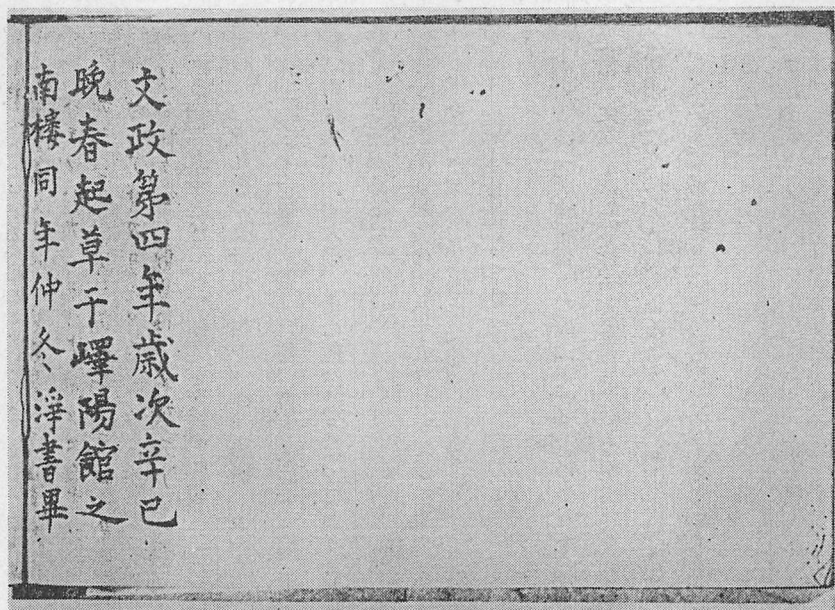 文政第四年歳次辛巳
晩春起草于嶧陽館之
南樓同年仲冬淨書畢